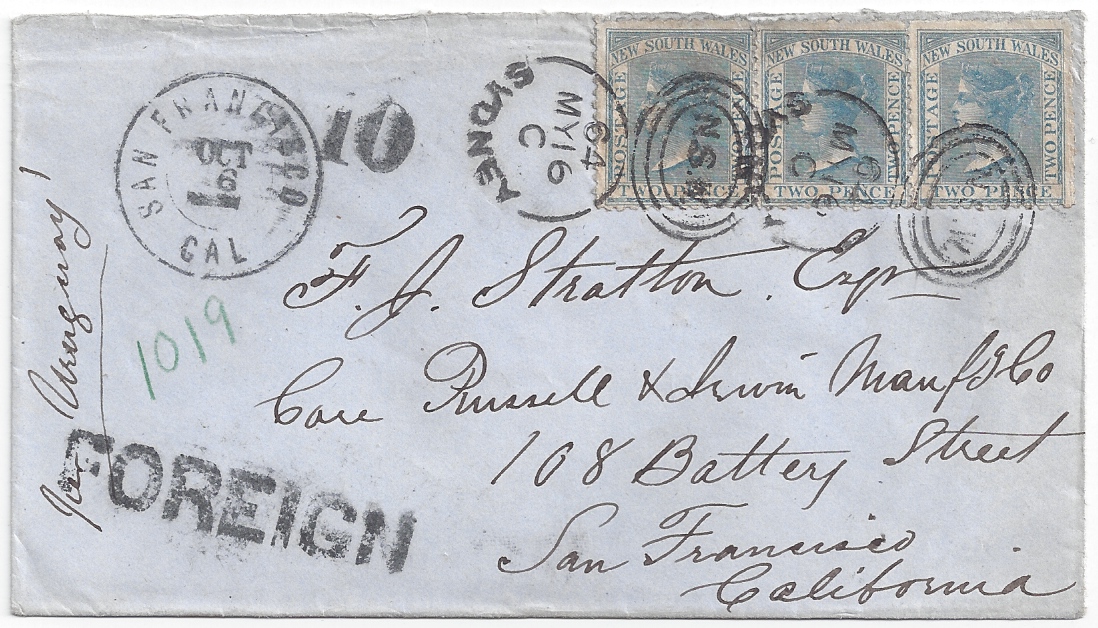 SAN FRANCISCO
OCT
6
CAL
10
SYDNEY
C
MY 16
64
NEW SOUTH WALES
POSTAGE
TWO PENCE
TWO PENCE
NEW SOUTH WALES
POSTAGE
TWO PENCE
TWO PENCE
NEW SOUTH WALES
POSTAGE
TWO PENCE
TWO PENCE
F. J. Stratton
Care Russell & Irwin Manufg Co
108 Battery Street
San Francisco
California
1019
FOREIGN